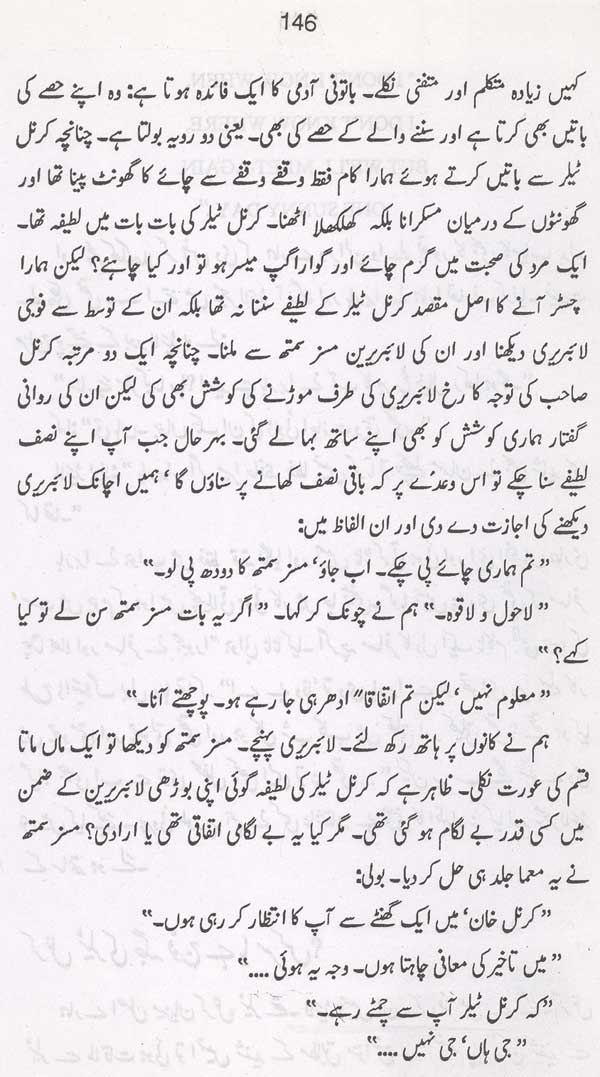 146
کہیں زیادہ متکلم اور متفنی نکلے۔ باتونی آدمی کا ایک فائدہ ہوتا ہے: وہ اپنے حصے کی
باتیں بھی کرتا ہے اور سننے والے کے حصے کی بھی۔ یعنی دو رویہ بولتا ہے۔ چنانچہ کرنل
ٹیلر سے باتیں کرتے ہوئے ہمارا کام فقط وقفے وقفے سے چائے کا گھونٹ پینا تھا اور
گھونٹوں کے درمیان مسکرانا بلکہ کھلکھلا اٹھنا۔ کرنل ٹیلر کی بات بات میں لطیفہ تھا۔
ایک مرد کی صحبت میں گرم چائے اور گوارا گپ میسر ہو تو اور کیا چاہئے؟ لیکن ہمارا
چسٹر آنے کا اصل مقصد کرنل ٹیلر کے لطیفے سننا نہ تھا بلکہ ان کے توسط سے فوجی
لائبریری دیکھنا اور ان کی لائبریرین مسز سمتھ سے ملنا۔ چنانچہ ایک دو مرتبہ کرنل
صاحب کی توجہ کا رخ لائبریری کی طرف موڑنے کی کوشش بھی کی لیکن ان کی روانی
گفتار ہماری کوشش کو بھی اپنے ساتھ بہا لے گئی۔ بہر حال جب آپ اپنے نصف
لطیفے سنا چکے تو اس وعدے پر کہ باقی نصف کھانے پر سناؤں گا، ہمیں اچانک لائبریری
دیکھنے کی اجازت دے دی اور ان الفاظ میں:
"تم ہماری چائے پی چکے۔ اب جاؤ، مسز سمتھ کا دودھ پی لو۔"
"لاحول و لاقوۃ۔" ہم نے چونک کر کہا۔ "اگر یہ بات مسز سمتھ سن لے تو کیا
کہے؟"
"معلوم نہیں، لیکن تم اتفاقا" ادھر ہی جا رہے ہو۔ پوچھتے آنا۔"
ہم نے کانوں پر ہاتھ رکھ لئے۔ لائبریری پہنچے۔ مسز سمتھ کو دیکھا تو ایک ماں ماتا
قسم کی عورت نکلی۔ ظاہر ہے کہ کرنل ٹیلر کی لطیفہ گوئی اپنی بوڑھی لائبریرین کے ضمن
میں کسی قدر بے لگام ہو گئی تھی۔ مگر کیا یہ بے لگامی اتفاقی تھی یا ارادی؟ مسز سمتھ
نے یہ معما جلد ہی حل کر دیا۔ بولی:
"کرنل خان، میں ایک گھنٹے سے آپ کا انتظار کر رہی ہوں۔"
"میں تاخیر کی معافی چاہتا ہوں۔ وجہ یہ ہوئی ...."
"کہ کرنل ٹیلر آپ سے چمٹے رہے۔"
"جی ہاں، جی نہیں ...."